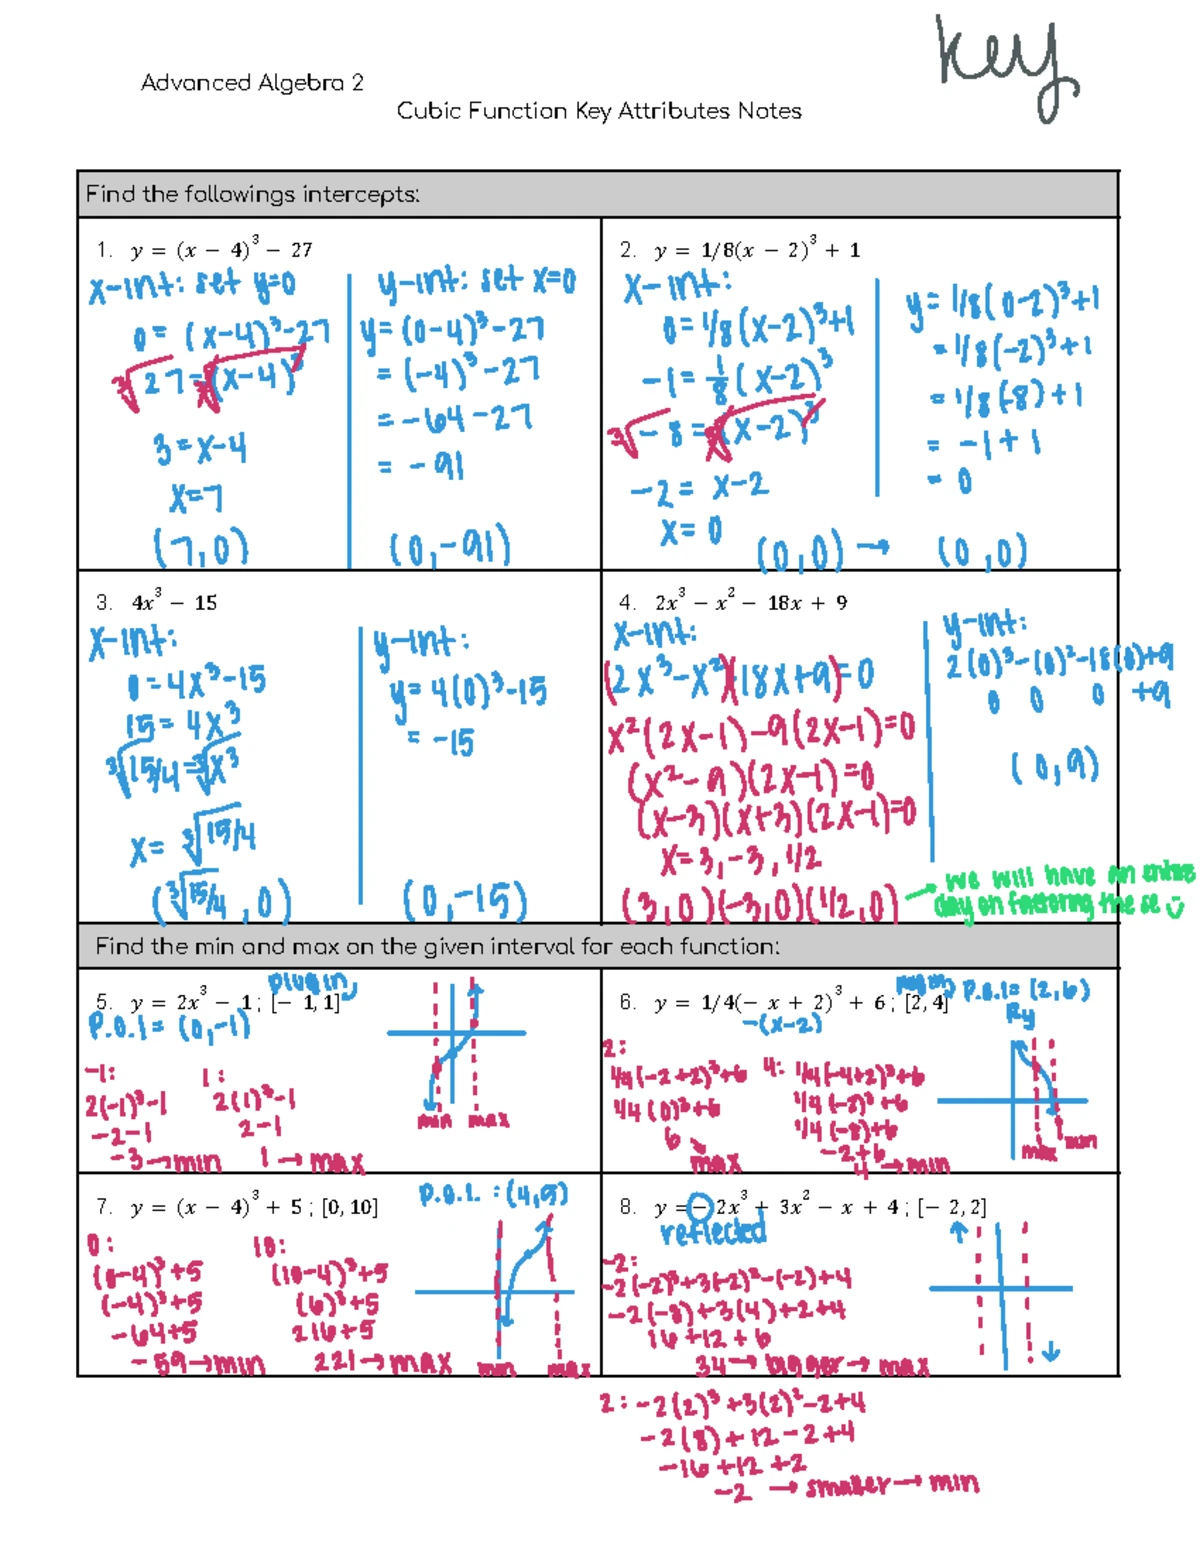 key
Advanced Algebra 2
Cubic Function Key Attributes Notes
Find the followings intercepts:
1. y = (x − 4)³ − 27
x-int: set y=0
0 = (x-4)³-27
∛27 = ∛(x-4)³
3 = x-4
x=7
(7,0)
y-int: set x=0
y=(0-4)³-27
= (-4)³-27
= -64-27
= -91
(0,-91)
2. y = 1/8(x − 2)³ + 1
x-int:
0=1/8(x-2)³+1
-1= 1/8(x-2)³
∛-8 = ∛(x-2)³
-2= x-2
x= 0
(0,0) →
y= 1/8(0-2)³+1
= 1/8(-2)³+1
= 1/8(-8)+1
= -1+1
= 0
(0,0)
3. 4x³ − 15
x-int:
0=4x³-15
15= 4x³
∛15/4=∛x³
x= ∛15/4
(∛15/4, 0)
y-int:
y= 4(0)³-15
= -15
(0,-15)
4. 2x³ − x² − 18x + 9
x-int:
(2x³-x²)(18x+9)=0
x²(2x-1)-9(2x-1)=0
(x²-9)(2x-1)=0
(x-3)(x+3)(2x-1)=0
x=3,-3,1/2
(3,0)(-3,0)(1/2,0)
y-int:
2(0)³-(0)²-18(0)+9
0 0 0 +9
(0,9)
→ we will have an entire
day on factoring these
Find the min and max on the given interval for each function:
5. y = 2x³ − 1 ; [− 1, 1]
plug in
P.O.I= (0,-1)
-1:
2(-1)³-1
-2-1
-3→min
1:
2(1)³-1
2-1
1→max
min max
6. y = 1/4(− x + 2)³ + 6 ; [2, 4]
-(x-2)
P.O.I= (2,6)
Ry
2:
1/4(-2+2)³+6
1/4(0)³+6
6
max
4: 1/4(-4+2)³+6
1/4(-2)³+6
1/4(-8)+6
-2+6
4→min
max min
7. y = (x − 4)³ + 5 ; [0, 10]
P.O.I. =(4,5)
0:
(0-4)³+5
(-4)³+5
-64+5
-59→min
10:
(10-4)³+5
(6)³+5
216+5
221→max
min max
8. y =− 2x³ + 3x² − x + 4 ; [− 2, 2]
reflected
-2:
-2(-2)³+3(-2)²-(-2)+4
-2(-8)+3(4)+2+4
16+12+6
34→bigger→max
2: -2(2)³+3(2)²-2+4
-2(8)+12-2+4
-16+12+2
-2→smaller→min